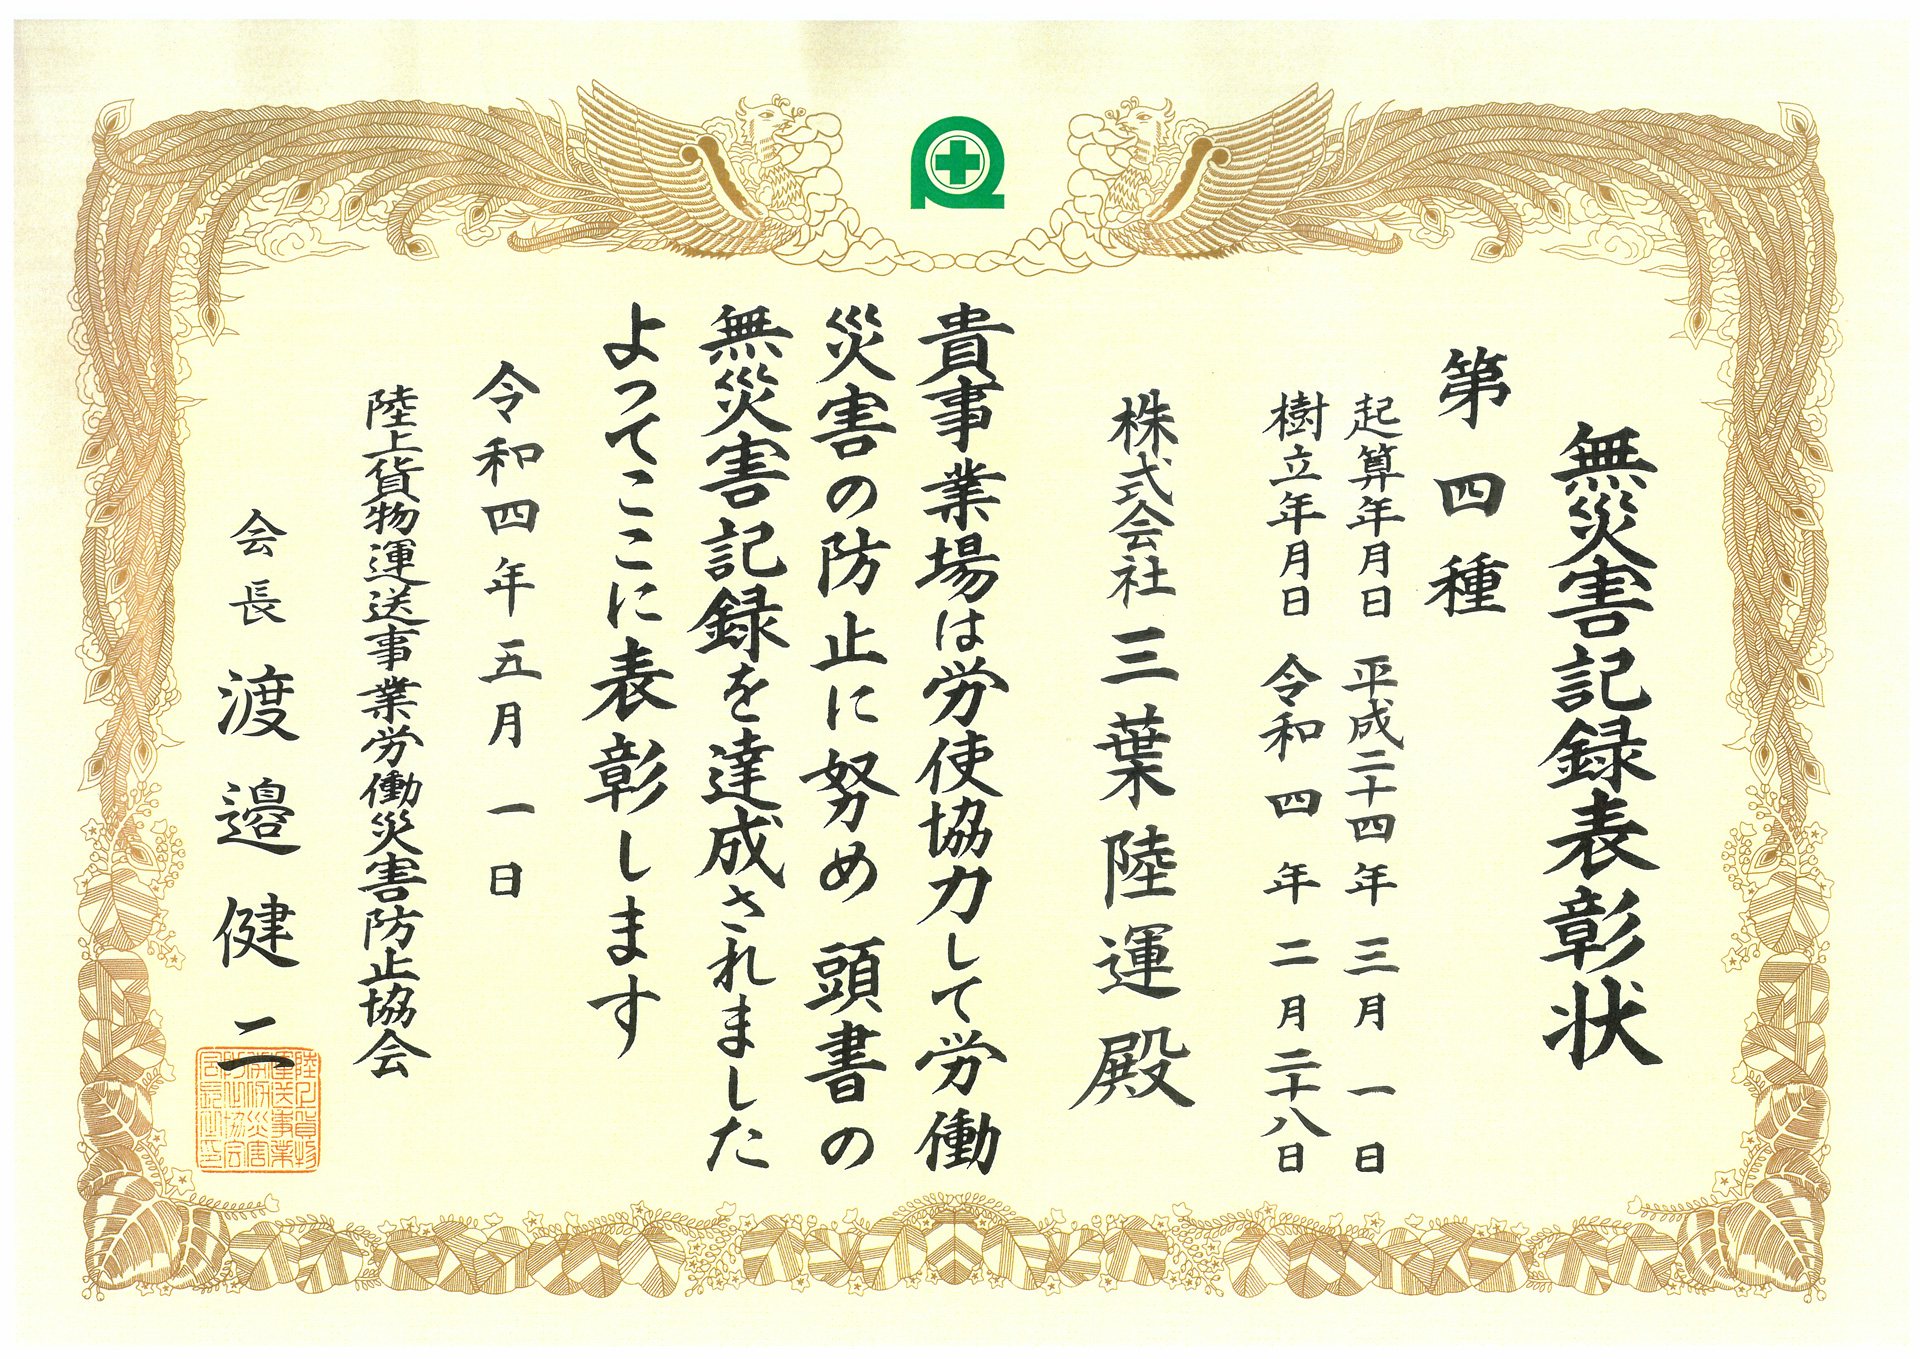 無災害記録表彰状
第四種
起算年月日 平成二十四年三月一日
樹立年月日 令和四年二月二十八日
株式会社三葉陸運殿
貴事業場は労使協力して労働
災害の防止に努め頭書の
無災害記録を達成されました
よってここに表彰します
令和四年五月一日
陸上貨物運送事業労働災害防止協会
会長 渡邉健二
陸上貨物
運送事業
労働災害
防止協会
会長之印